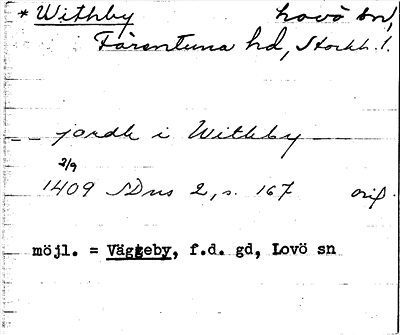 * Withby Lovö sn,
Färentuna hd, Stockh. l.
jordh i Withby
2/9
1409 SDns 2, s. 167 orig.
möjl. = Väggeby, f.d. gd, Lovö sn